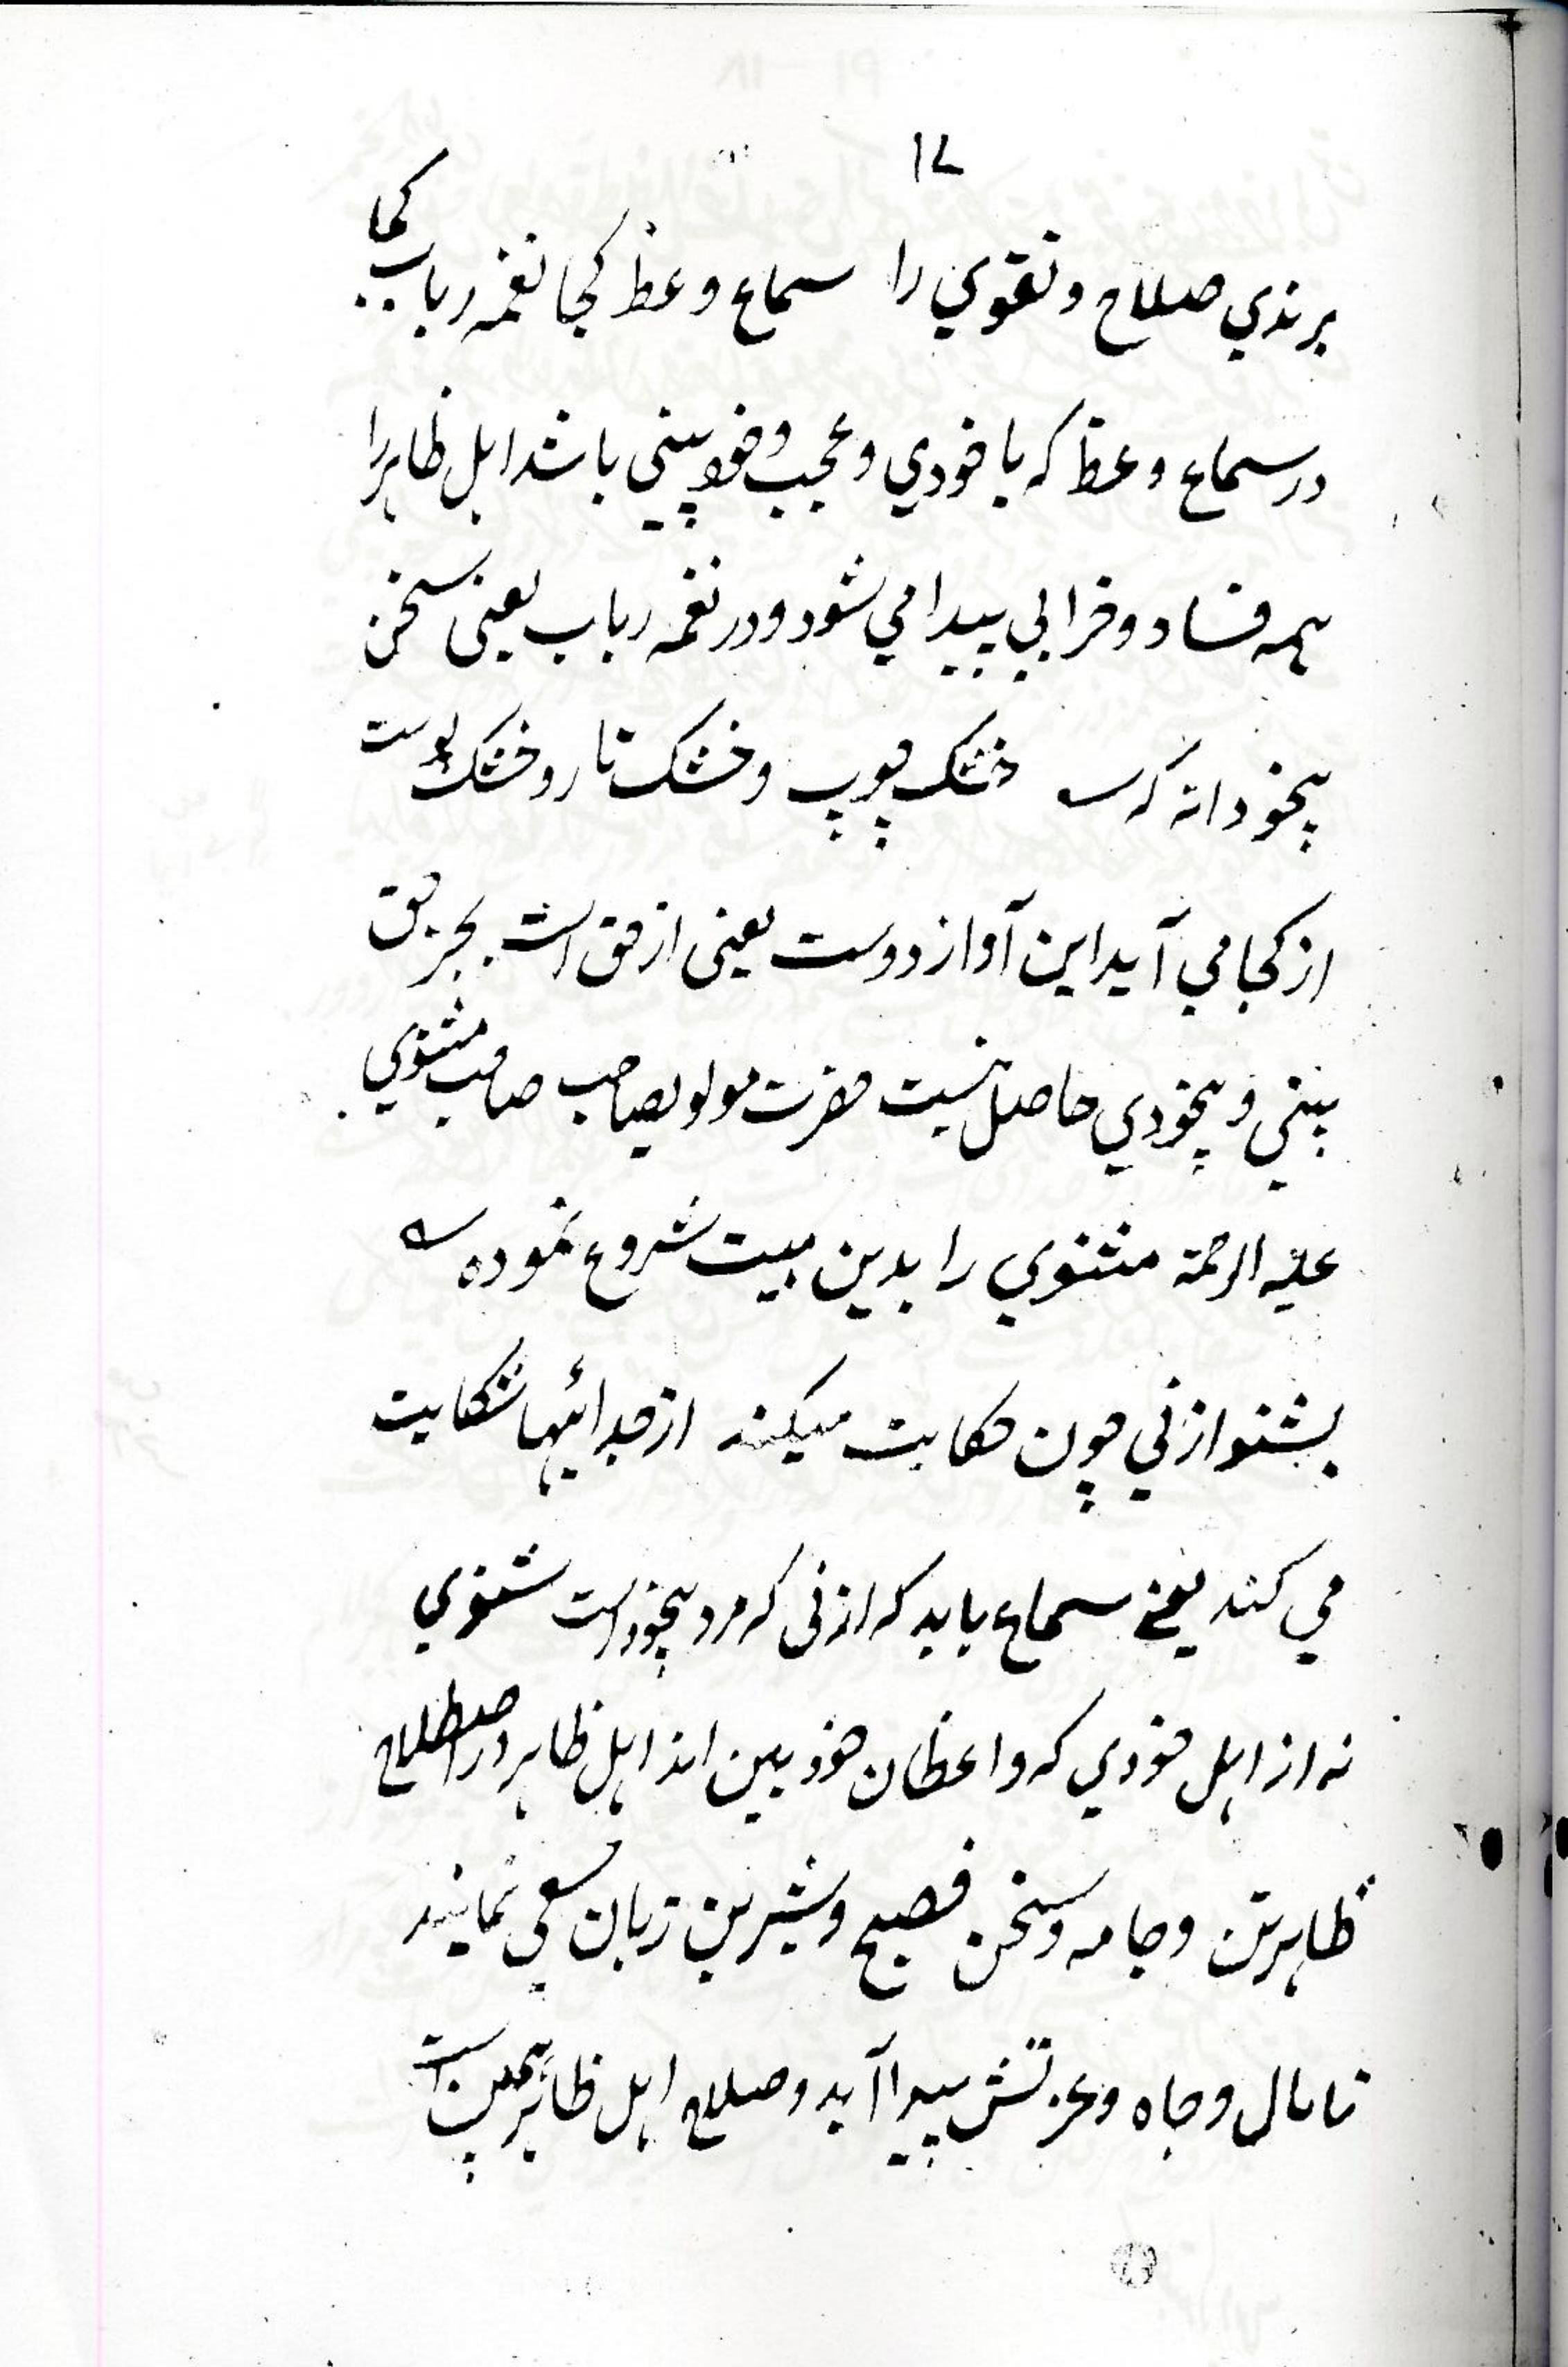 ۱۷
برندي صلاح و تقوي را سماع وعظ کجا نغمه رباب کجا
در سماع وعظ که با خودي و عجب و خود بيني باشد اهل ظاهر را
همه فساد و خرابي پيدا مي شود و در نغمه رباب يعني سخن
بيخودانه که خشک چوب و خشک تار و خشک پوست
از کجا مي آيد اين آواز دوست يعني از حق است بجز حق
بيني و بيخودي حاصل نيست حضرت مولويصاحب صاحب مثنوي
عليه الرحمة مثنوي را بدين بيت شروع نموده
بشنو از ني چون حکايت ميکند از جدائيها شکايت
مي کند يعنے سماع بايد که از نی که مرد بيخود است شنوي
نه از اهل خودي که واعظان خود بين اند اهل ظاهر در اصطلاح
ظاهر تن و جامه و سخن فصيح و شيرين زبان سعي نمايند
تا مال و جاه و عزتش پيدا آيد و صلاح اهل ظاهر همين است